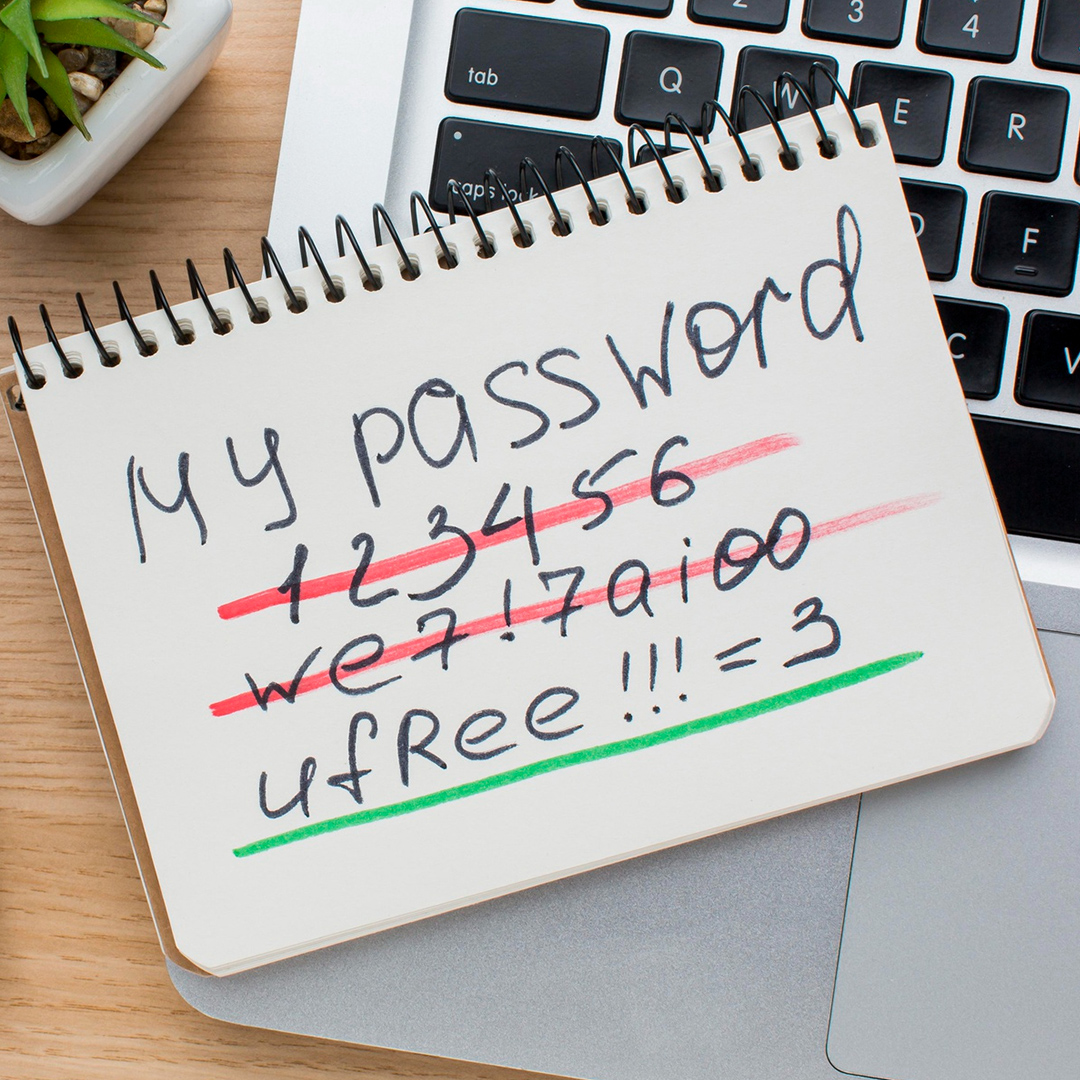 2 3 4
tab Q W E R
caps lock D F
C V
My password
123456
we7!7aioo
ufRee!!!=3